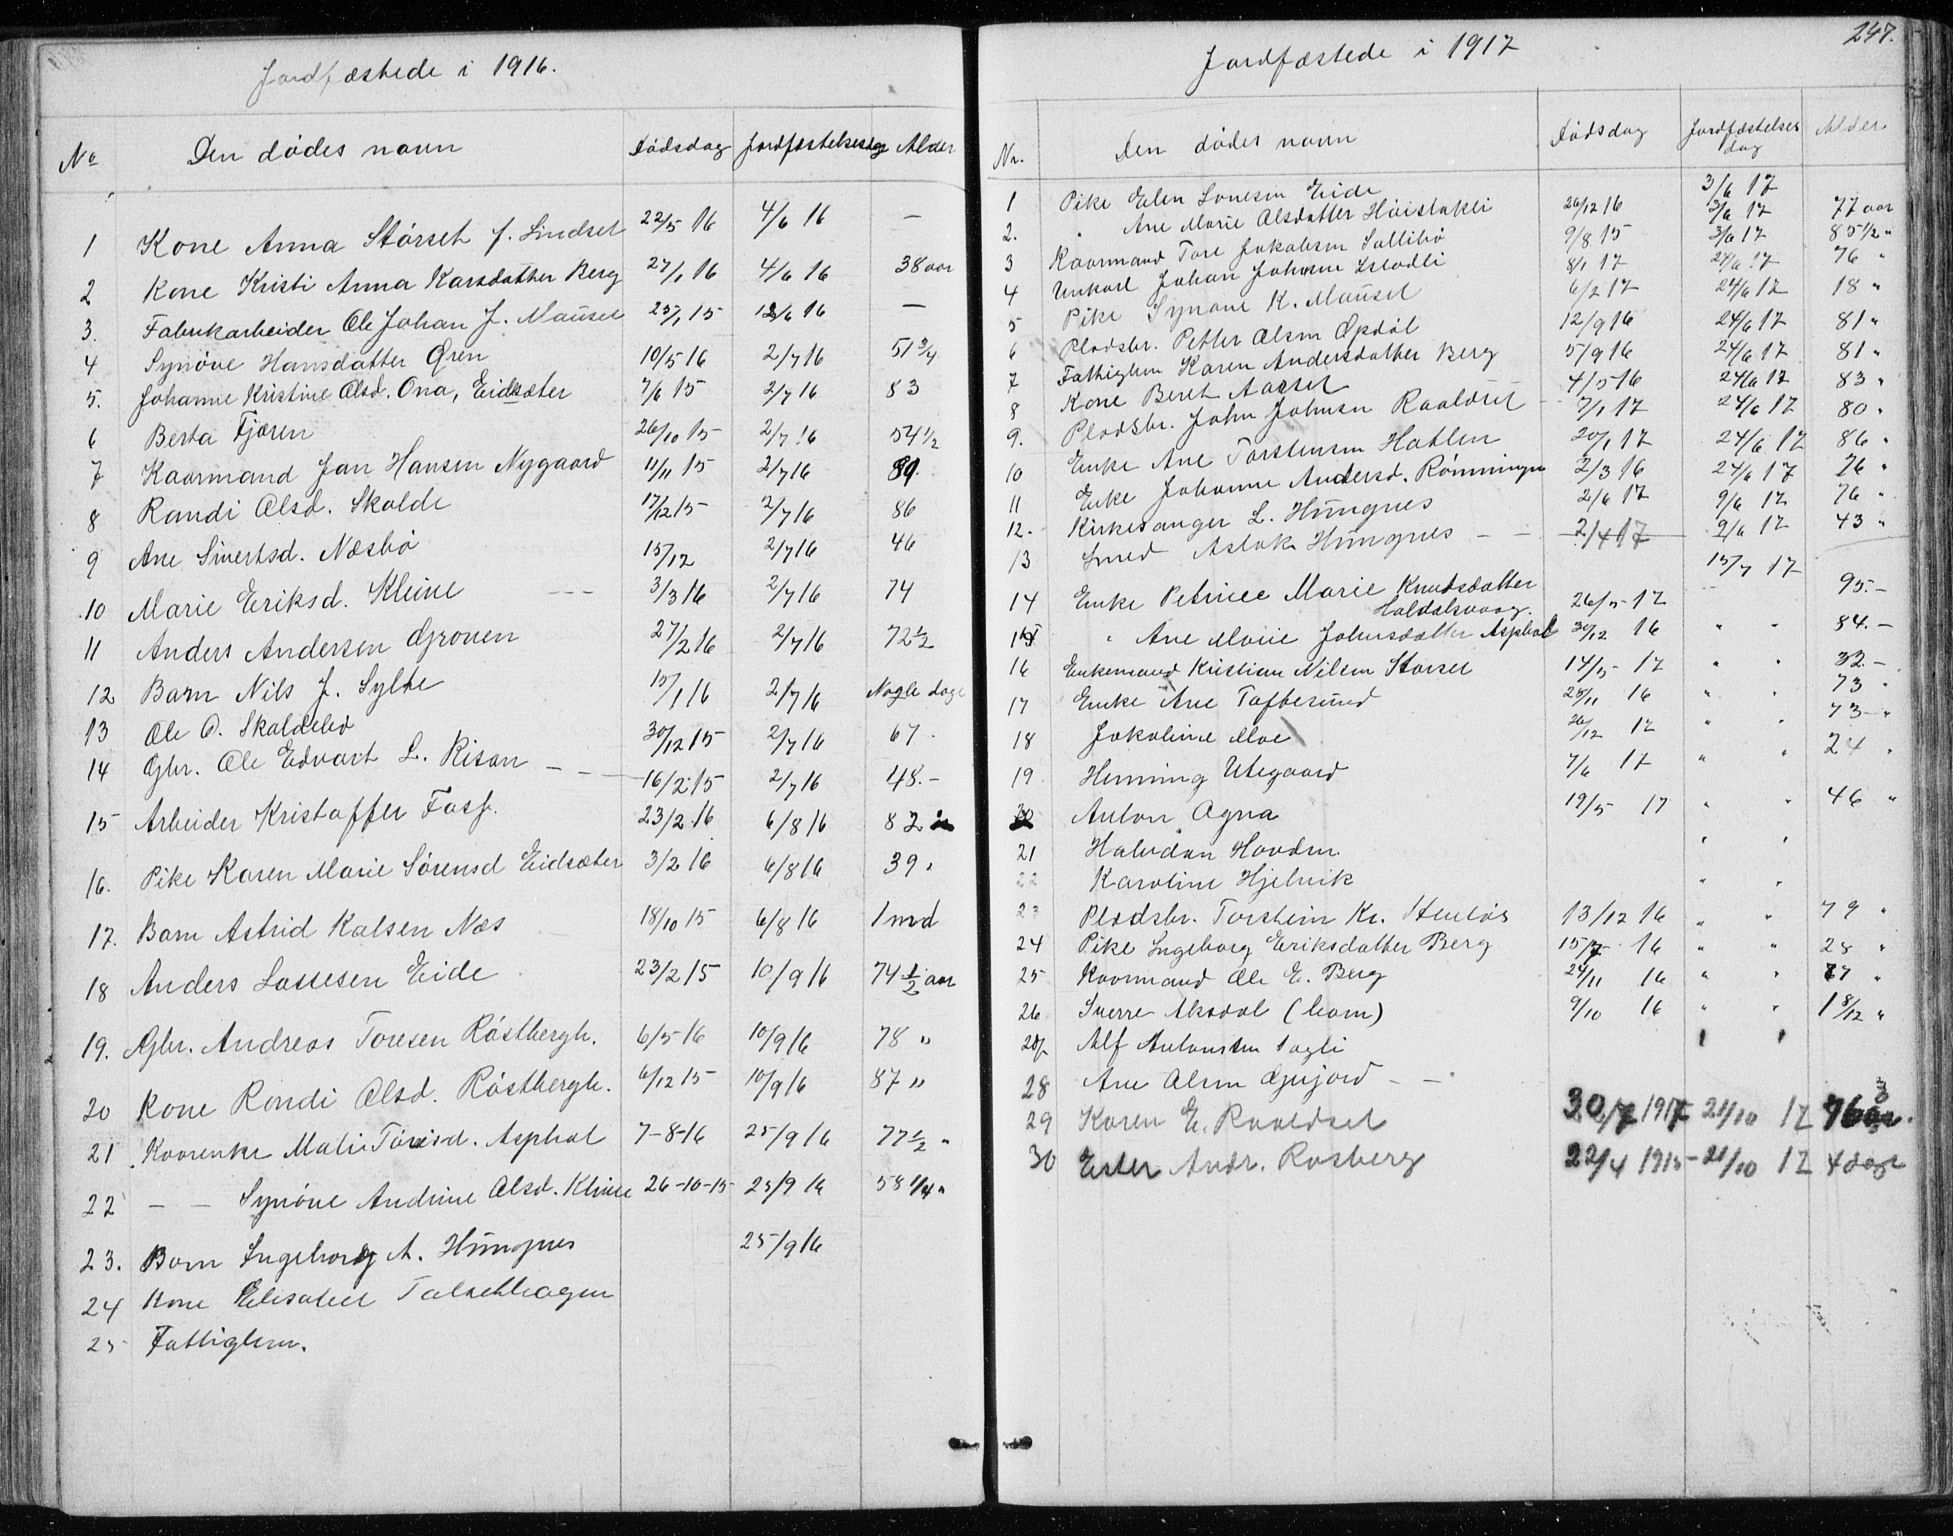 Jordfæstede i 1916.
No Den dødes navn Dødsdag Jordfæstelsesdag Alder
1 Kone Anna Størset f. Lindset 22/5 16 4/6 16 —
2 Kone Kristi Anna Larsdatter Berg 27/1 16 4/6 16 38 aar
3. Fabrikarbeider Ole Johan J. Mauset 25/1 15 12/6 16 —
4 Synøve Hansdatter Øren 10/5 16 2/7 16 51 3/4
5. Johanne Kristine Olsd. Ona, Eidsæter 7/6 15 2/7 16 83
6 Berta Fjæren 26/10 15 2/7 16 54 1/2
7 Kaarmand Jan Hansen Nygaard 11/11 15 2/7 16 89
8 Randi Olsd. Skalde 17/12 15 2/7 16 86
9 Ane Sivertsd. Næsbø 15/12 2/7 16 46
10 Marie Eriksd. Kleive 3/3 16 2/7 16 74
11 Anders Andersen Gronen 27/2 16 2/7 16 72 1/2
12 Barn Nils J. Sylte 15/1 16 2/7 16 Nogle dage
13 Ole O. Skaldebø 30/12 15 2/7 16 67
14 Gbr. Ole Edvart L. Risan 16/2 15 2/7 16 48.-
15 Arbeider Kristoffer 23/2 16 6/8 16 82
16. Pike Karen Marie Sørensd Eidsæter 3/2 16 6/8 16 39 "
17. Barn Astrid Kalsen Næs 18/10 15 6/8 16 1 md
18 Anders Lassesen Eide 23/2 15 10/9 16 74 1/2 aar
19. Gbr. Andreas Toresen Røstbergh. 6/5 16 10/9 16 78 "
20 Kone Randi Olsd. Røstbergh. 6/12 15 10/9 16 87 "
21 Kaarenke Mali Toresd. Asphol 7-8-16 25/9 16 77 1/2 "
22 — — Synöve Andrine Olsd. Kleive 26-10-15 25/9 16 58 1/4 "
23. Barn Ingeborg A. Hungnes 25/9 16
24 Kone Elisabet
25 Fattiglem.
247.
Jordfæstede i 1917
Nr. Den dødes navn Dødsdag Jordfæstelses dag Alder
1 Pike Elen Eide 26/12 16 3/6 17 77 aar
2. " Ane Marie Olsdatter Høistakli 9/8 15 3/6 17 85 1/2 "
3 Kaarmand Tore Jakobsen Sollibø 8/1 17 3/6 17 76 "
4 Unkarl Johan Johnsen 6/2 17 24/6 17 18 "
5 Pike Synøve K. Mauset 12/9 16 24/6 17 81 "
6 Pladsbr. Petter Olsen Opdøl 5/9 16 24/6 17 81 "
7 Fattiglem Karen Andersdatter Berg 4/5 16 24/6 17 83 "
8 Kone Beret Aarset 7/1 17 24/6 17 80 "
9. Pladsbr. John Johnsen Raaldset 20/1 17 24/6 17 86 "
10 Enke Ane Torstensen Hatlen 2/3 16 24/6 17 76 "
11 Enke Johanne Andersd. Rønningen 2/6 17 9/6 17 76 "
12. Kirkesanger L. Hungnes 2/4 17 9/6 17 43 "
13 Smed Aslak Hungnes — — 15/7 17
14 Enke Petrice Marie Knutsdatter Haldalsvaag. 26/5 17 95.-
15 " Ane Marie Johnsdatter Asphol 30/12 16 " " 84.-
16 Enkemand Kristian Nilsen Størset 14/5 17 " " 32.-
17 Enke Ane Taftesund 25/11 16 " " 73 "
18 Jakobine Moe 26/12 17 " " 73 "
19 Henning Utegaard 7/6 17 " " 24 "
20 Anton Ogna 19/5 17 " " 46 "
21 Halvdan Hovden " "
22 Karoline Hjelvik " "
23 Pladsbr. Torstein Kr. Stenløs 13/12 16 " " 79 "
24 Pike Ingeborg Eriksdatter Berg 15/7 16 " " 28 "
25 Kaarmand Ole E. Berg 24/11 16 " " 77 "
26 Sverre Aksdal (barn) 9/10 16 " " 1 8/12 "
27 Alf Antonsen " "
28 Ane Olsen Gujord — —
29 Karen E. Raaldset 30/7 1917 21/10 17 76
30 Ester Andr. Rosberg 22/4 1915- 21/10 17 4 dage